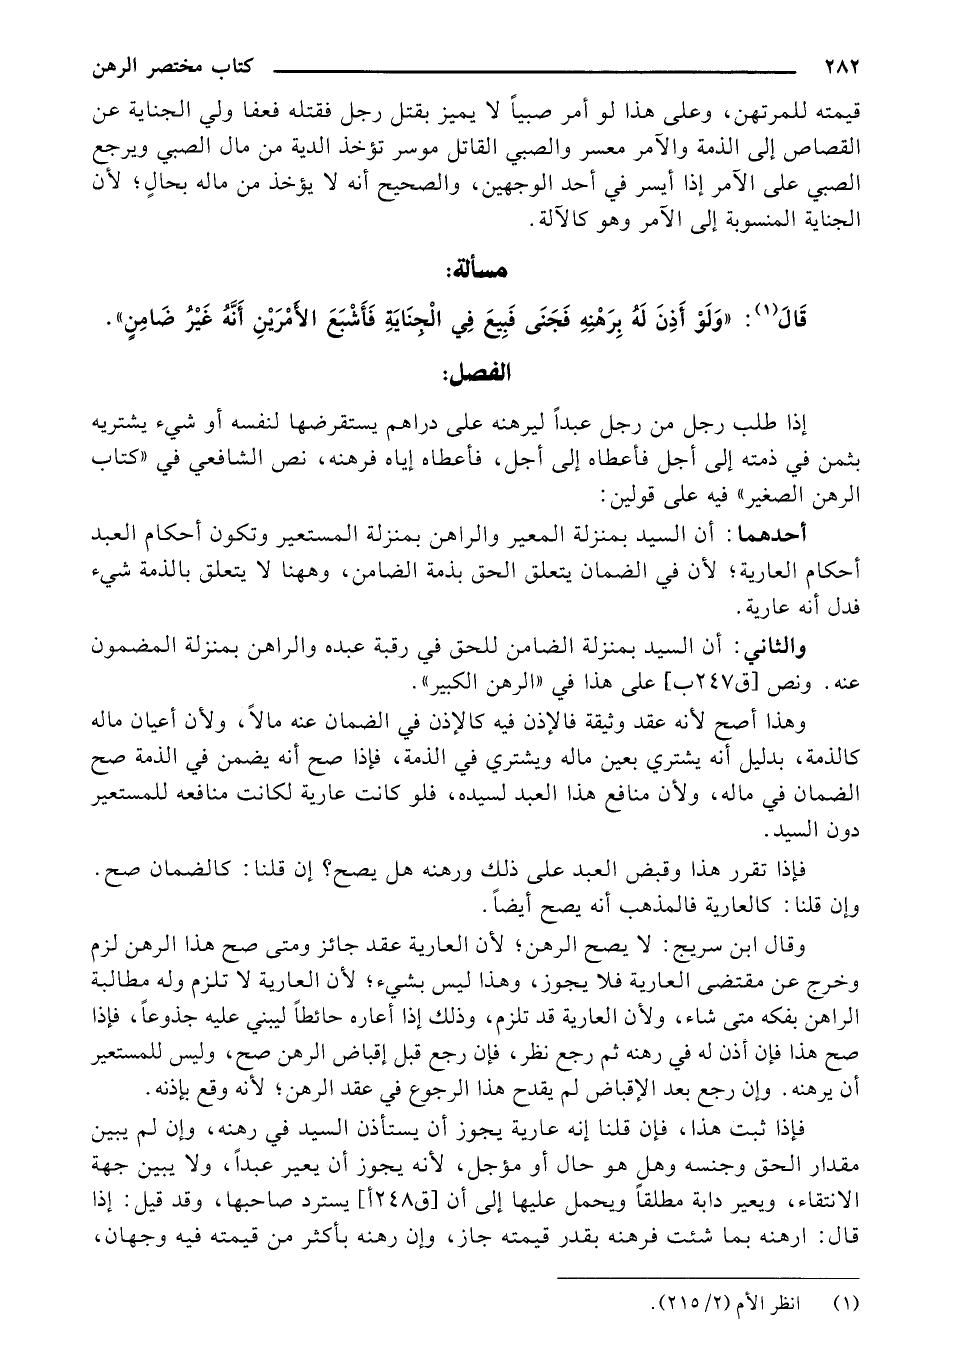 ٢٨٢ كتاب مختصر الرهن
قيمته للمرتهن، وعلى هذا لو أمر صبياً لا يميز بقتل رجل فقتله فعفا ولي الجناية عن
القصاص إلى الذمة والآمر معسر والصبي القاتل موسر تؤخذ الدية من مال الصبي ويرجع
الصبي على الآمر إذا أيسر في أحد الوجهين، والصحيح أنه لا يؤخذ من ماله بحالٍ؛ لأن
الجناية المنسوبة إلى الآمر وهو كالآلة.
مسألة:
قَالَ(١): «وَلَوْ أَذِنَ لَهُ بِرَهْنِهِ فَجَنَى فَبِيعَ فِي الْجِنَايَةِ فَأَشْبَعَ الأَمْرَيْنِ أَنَّهُ غَيْرُ ضَامِنٍ».
الفصل:
إذا طلب رجل من رجل عبداً ليرهنه على دراهم يستقرضها لنفسه أو شيء يشتريه
بثمن في ذمته إلى أجل فأعطاه إلى أجل، فأعطاه إياه فرهنه، نص الشافعي في «كتاب
الرهن الصغير» فيه على قولين:
أحدهما: أن السيد بمنزلة المعير والراهن بمنزلة المستعير وتكون أحكام العبد
أحكام العارية؛ لأن في الضمان يتعلق الحق بذمة الضامن، وههنا لا يتعلق بالذمة شيء
فدل أنه عارية.
والثاني: أن السيد بمنزلة الضامن للحق في رقبة عبده والراهن بمنزلة المضمون
عنه. ونص [ق٢٤٧ب] على هذا في «الرهن الكبير».
وهذا أصح لأنه عقد وثيقة فالإذن فيه كالإذن في الضمان عنه مالاً، ولأن أعيان ماله
كالذمة، بدليل أنه يشتري بعين ماله ويشتري في الذمة، فإذا صح أنه يضمن في الذمة صح
الضمان في ماله، ولأن منافع هذا العبد لسيده، فلو كانت عارية لكانت منافعه للمستعير
دون السيد.
فإذا تقرر هذا وقبض العبد على ذلك ورهنه هل يصح؟ إن قلنا: كالضمان صح.
وإن قلنا: كالعارية فالمذهب أنه يصح أيضاً.
وقال ابن سريج: لا يصح الرهن؛ لأن العارية عقد جائز ومتى صح هذا الرهن لزم
وخرج عن مقتضى العارية فلا يجوز، وهذا ليس بشيء؛ لأن العارية لا تلزم وله مطالبة
الراهن بفكه متى شاء، ولأن العارية قد تلزم، وذلك إذا أعاره حائطاً ليبني عليه جذوعاً، فإذا
صح هذا فإن أذن له في رهنه ثم رجع نظر، فإن رجع قبل إقباض الرهن صح، وليس للمستعير
أن يرهنه. وإن رجع بعد الإقباض لم يقدح هذا الرجوع في عقد الرهن؛ لأنه وقع بإذنه.
فإذا ثبت هذا، فإن قلنا إنه عارية يجوز أن يستأذن السيد في رهنه، وإن لم يبين
مقدار الحق وجنسه وهل هو حال أو مؤجل، لأنه يجوز أن يعير عبداً، ولا يبين جهة
الانتقاء، ويعير دابة مطلقاً ويحمل عليها إلى أن [ق٢٤٨أ] يسترد صاحبها، وقد قيل: إذا
قال: ارهنه بما شئت فرهنه بقدر قيمته جاز، وإن رهنه بأكثر من قيمته فيه وجهان،
(١) انظر الأم (٢/ ٢١٥).